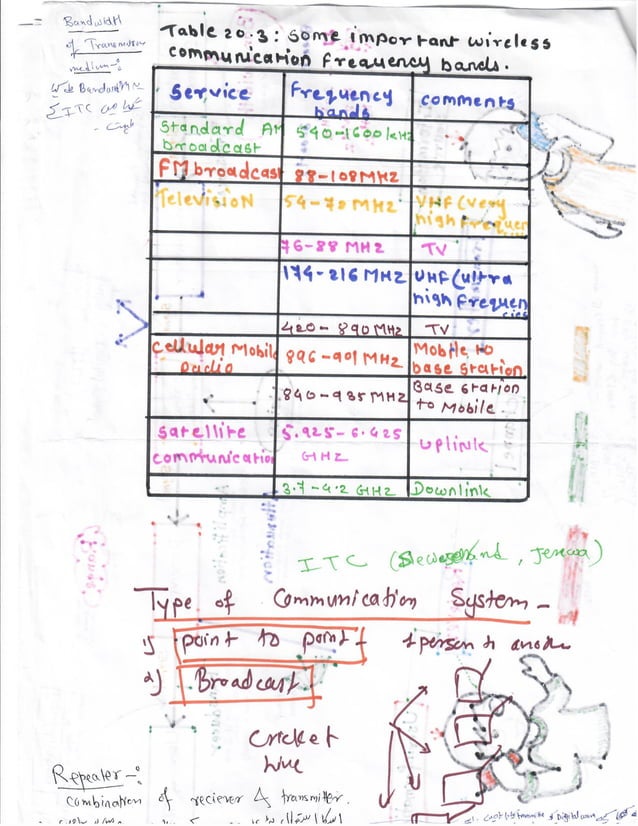 Bandwidth
of Transmission
medium -:
Table 20.3: Some important wireless
communication frequency bands.
Service
Frequency
bands
comments
Standard AM
broadcast
540-1600 kHz
FM broadcast
88-108 MHz
Television
54-72 MHz
VHF (very
high frequen
cies
76-88 MHz
TV
174-216 MHz
UHF (ultra
high frequen
cies
420-890 MHz
TV
cellular Mobile
Radio
896-901 MHz
Mobile to
base station
840-935 MHz
Base station
to Mobile
satellite
communication
5.925-6.425
GHz
uplink
3.7-4.2 GHz
Downlink
ITC
Type of Communication System -
1) point to point - 1 person to
2) Broadcast
Cricket
live
Repeater -:
combination of reciever & transmitter.